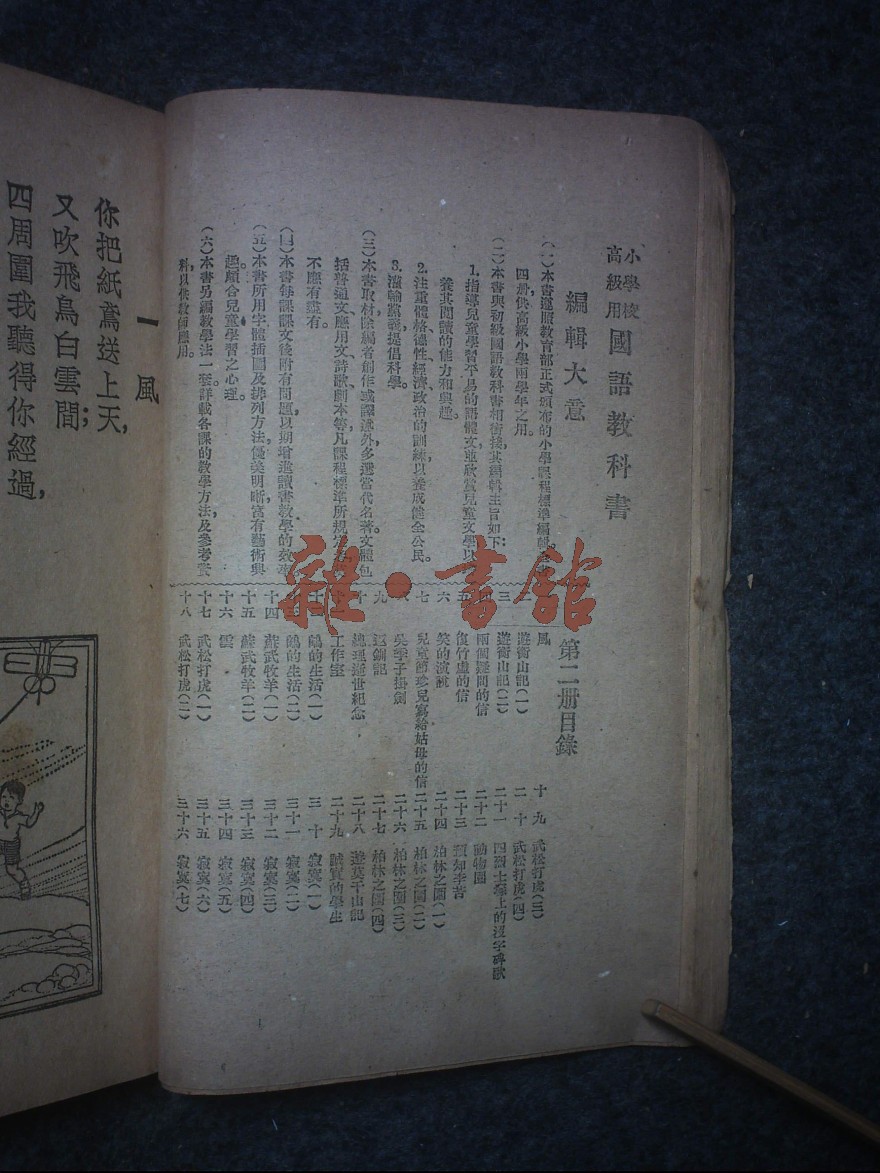 小學校
高級用
國語教科書
編輯大意
(一)本書遵照教育部正式頒布的小學課程標準編輯
四冊供高級小學兩學年之用。
(二)本書與初級國語教科書相銜接其編輯主旨如下:
1.指導兒童學習平易的語體文並欣賞兒童文學以
養其閱讀的能力和興趣。
2.注重體格德性經濟政治的訓練以養成健全公民。
3.灌輸黨義提倡科學。
(三)本書取材除編者創作或譯述外多選當代名著。文體包
括普通文應用文、詩歌劇本等凡課程標準所規定
不應有盡有。
(四)本書每課課文後附有問題以期增進讀書教學的效率。
(五)本書所用字體插圖及排列方法優美明晰富有藝術興
趣頗合兒童學習之心理。
(六)本書另編教學法一套詳載各課的教學方法及參考資
料以供教師應用。
第二册目錄
風
二 遊衡山記(一)
三 遊衡山記(二)
四 兩個疑問的信
五 復竹虛的信
六 笑的演說
七 兒童節珍兒寫給姑母的信
八 吳季子掛劍
九
十 總理逝世紀念
十一 工作室
十二 鴿的生活(一)
十三 鴿的生活(二)
十四 蘇武牧羊(一)
十五 蘇武牧羊(二)
十六 雲
十七 武松打虎(一)
十八 武松打虎(二)
十九 武松打虎(三)
二十 武松打虎(四)
二十一 四烈士塚上的沒字碑歌
二十二 動物園
二十三
二十四 柏林之圍(一)
二十五 柏林之圍(二)
二十六 柏林之圍(三)
二十七 柏林之圍(四)
二十八 遊莫干山記
二十九 誠實的學生
三十 寂寞(一)
三十一 寂寞(二)
三十二 寂寞(三)
三十三 寂寞(四)
三十四 寂寞(五)
三十五 寂寞(六)
三十六 寂寞(七)
一 風
你把紙鳶送上天,
又吹飛鳥白雲間;
四周圍我聽得你經過,
雜·書館